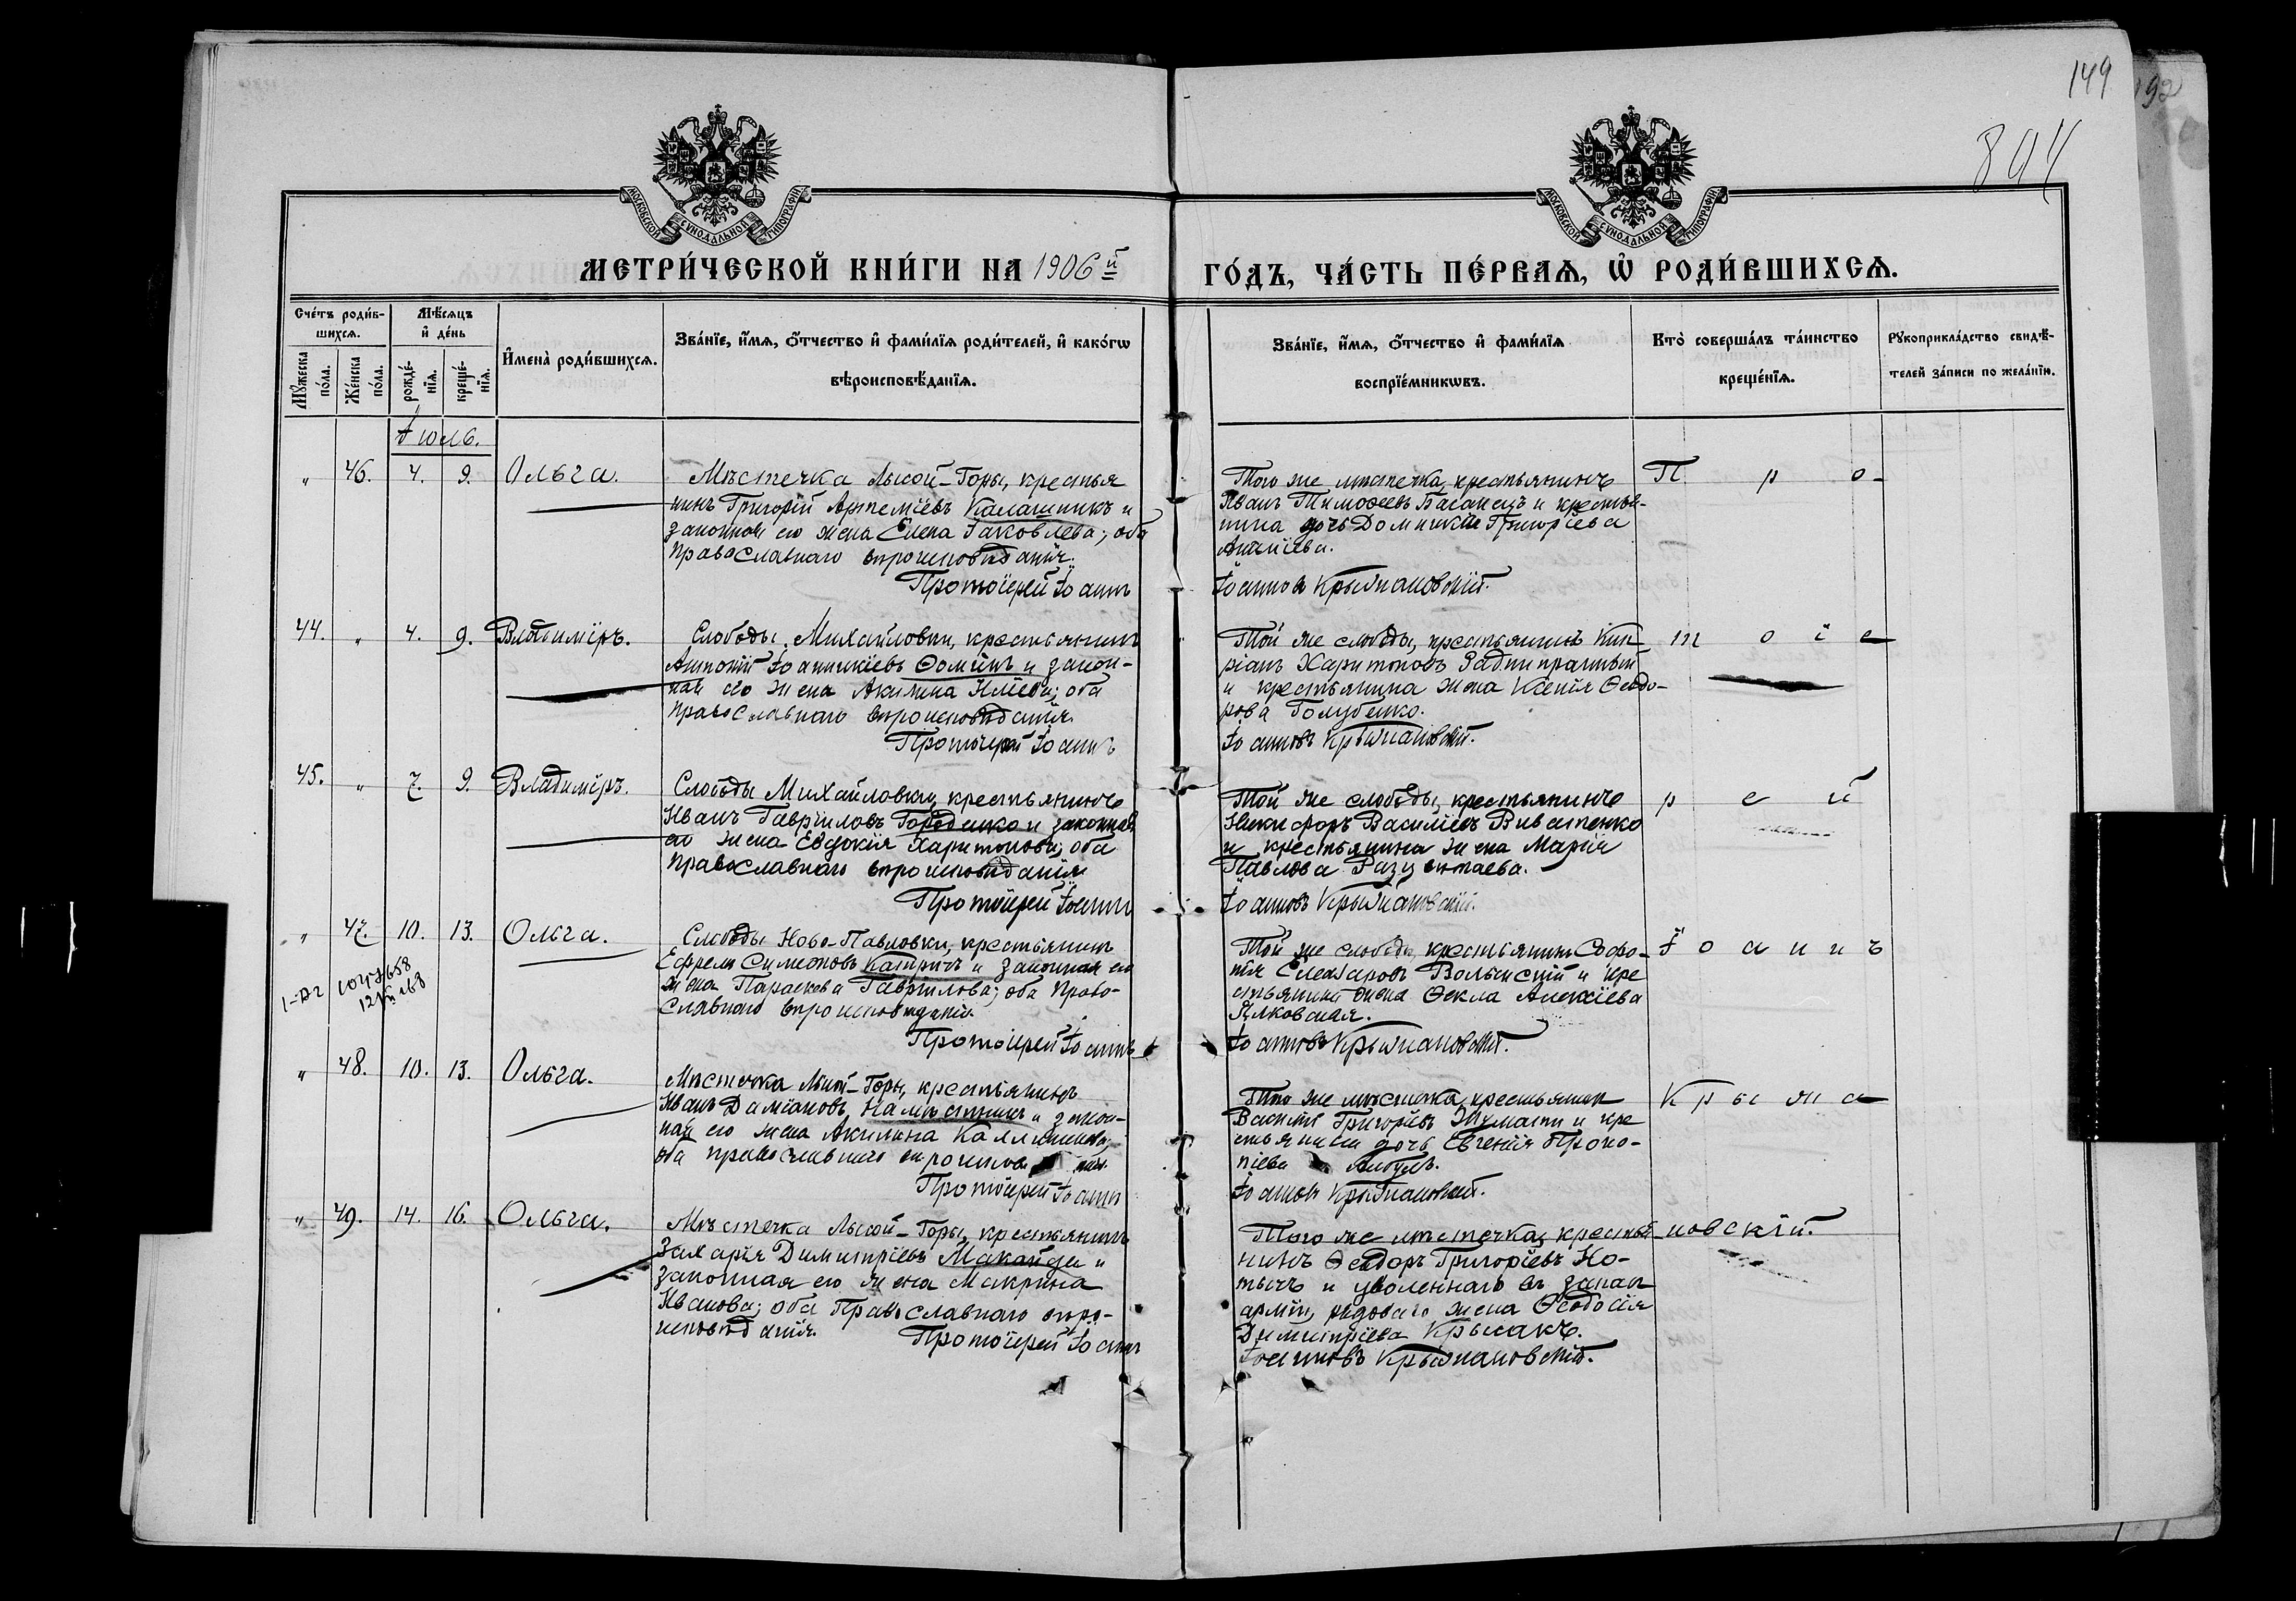 149
192
894
МОСКОВСКОЙ СУНОДАЛЬНОЙ ТИПОГРАФІИ
МОСКОВСКОЙ СУНОДАЛЬНОЙ ТИПОГРАФІИ
МЕТРИ́ЧЕСКОЙ КНИ́ГИ НА 1906й
ГО́ДЪ, ЧА́СТЬ ПЕ́РВАѦ, Ѡ҆ РОДИ́ВШИХСѦ.
Сче́тъ роди́в-
шихсѧ.
Мꙋ́жеска по́ла.
Же́нска по́ла.
Мѣ́сѧцъ
и҆ де́нь
рожде́-
нїѧ.
креще́-
нїѧ.
И҆мена̀ роди́вшихсѧ.
Зва́нїе, и҆́мѧ, ѻ҆́тчество и҆ фами́лїѧ роди́телей, и҆ како́гѡ
вѣроисповѣ́данїѧ.
Зва́нїе, и҆́мѧ, ѻ҆́тчество и҆ фами́лїѧ
воспрїе́мникѡвъ.
Кто̀ соверша́лъ та́инство
креще́нїѧ.
Рꙋкоприкла́дство свидѣ́-
телей за́писи по жела́нїю.
Іюль.
" 46. 4. 9. Ольга.
Мѣстечка Лысой-Горы, крестья
нинъ Григорій Артеміевъ Калашникъ и
законная его жена Елена Іаковлева; оба
православнаго вѣроисповѣданія.
Протоіерей Іоаннъ
Того же мѣстечка, крестьянинъ
Иванъ Тимоѳеевъ Баганецъ и крестья-
нина дочь Домникія Григоріева
Іоанновъ Крыжановскій.
П р о-
44. " 4. 9. Владиміръ.
Слободы Михайловки, крестьянинъ
Антоній Іоанникіевъ Ѳоминъ и закон-
ная его жена Акилина Иліева; оба
православнаго вѣроисповѣданія.
Протоіерей Іоаннъ
Той же слободы, крестьянинъ Кип-
ріанъ Харитоновъ
и крестьянина жена Ксенія Ѳеодо-
рова Голубенко.
Іоанновъ Крыжановскій.
т о і е
45. " 7. 9. Владиміръ.
Слободы Михайловки, крестьянинъ
Иванъ Гавріиловъ Городенко и законная
его жена Евдокія Харитонова; оба
православнаго вѣроисповѣданія.
Протоіерей Іоаннъ
Той же слободы, крестьянинъ
Никифоръ Василіевъ
и крестьянина жена Марія
Павлова
Іоанновъ Крыжановскій.
р е й
" 47. 10. 13. Ольга.
Слободы Ново-Павловки, крестьянинъ
Ефремъ Симеоновъ Катричъ и законная его
жена Параскева Гавріилова; оба право-
славнаго вѣроисповѣданія.
Протоіерей Іоаннъ
Той же слободы, крестьянинъ Софро-
нія Елеазаровъ Волынскій и кре
стьянина жена Ѳекла Алексіева
Іоанновъ Крыжановскій.
І о а н н ъ
" 48. 10. 13. Ольга.
Мѣстечка Лысой-Горы, крестьянинъ
Иванъ Даміановъ Намѣстникъ и закон-
ная его жена Акилина Каллиникова;
оба православнаго
Протоіерей Іоаннъ
Того же мѣстечка, крестьянинъ
Василій Григоріевъ и кре
стьянина дочь Евгенія Проко-
піева
Іоанновъ Крыжановскій.
К р ы ж а
" 49. 14. 16. Ольга.
Мѣстечка Лысой-Горы, крестьянинъ
Захарія Димитріевъ Макайда и
законная его жена Макрина
Иванова; оба православнаго вѣро-
исповѣданія.
Протоіерей Іоаннъ
Того же мѣстечка, крестья-
нинъ Ѳеодоръ Григоріевъ Но-
тычъ и уволеннаго въ запасъ
арміи, рядоваго жена Ѳеодосія
Димитріева Крысакъ.
Іоанновъ Крыжановскій.
новскій.